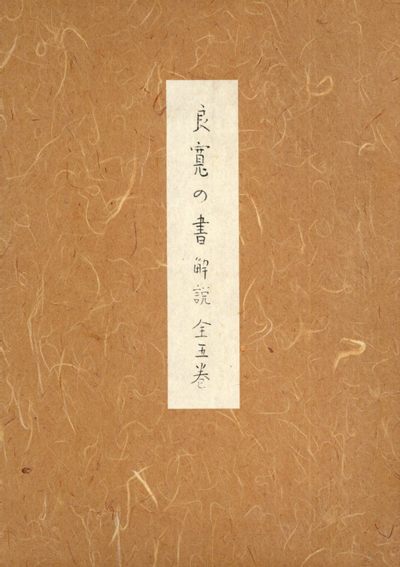 良寛の書 解説 全五巻